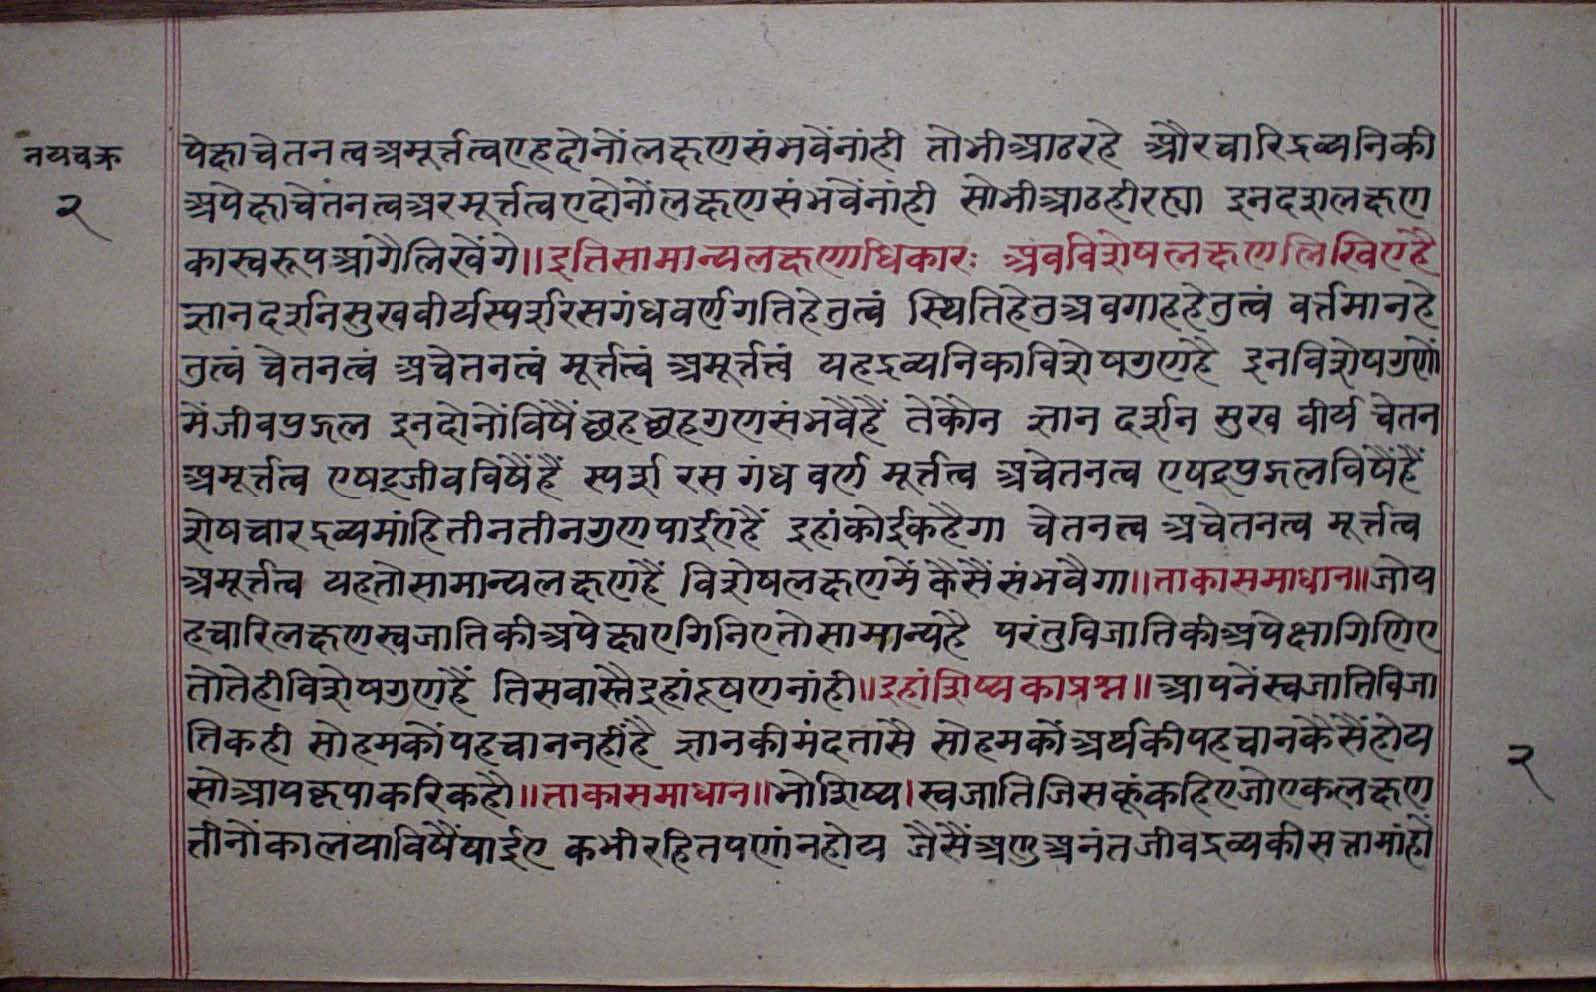 नयचक्र
२
पेक्षाचेतनत्वअमूर्त्तत्वएहदोनोंलक्षणसंभवेंनांही तोभीआठरहे औरचारिद्रव्यनिकी
अपेक्षाचेतंनत्वअरमूर्त्तत्वएदोनोंलक्षणसंभवेंनांही सोभीआठहीरह्या इनदशलक्षण
कास्वरूपआंगैलिखेंगे॥इतिसामान्यलक्षणाधिकारः अंवविशेषलक्षणलिखिएहै
ज्ञानदर्शनसुखवीर्यस्पर्शरसगंधवर्णगतिहेतुत्वं स्थितिहेतुअवगाहहेतुत्वं वर्त्तमानहे
तुत्वं चेतनत्वं अचेतनत्वं मूर्त्तत्वं अमूर्त्तत्वं यहद्रव्यनिकाविशेषगुणहै इनविशेषगुणों
मेंजीवपुद्गल इनदोनोंविषैंछहछहगुणसंभवैहैं तेकौन ज्ञान दर्शन सुख वीर्य चेतन
अमूर्त्तत्व एषट्जीवविषैंहैं स्पर्श रस गंध वर्ण मूर्त्तत्व अचेतनत्व एषट्पुद्गलविषैंहैं
शेषचारद्रव्यमांहितीनतीनगुणपाईएहैं इहांकोईकहैगा चेतनत्व अचेतनत्व मूर्त्तत्व
अमूर्त्तत्व यहतोसामान्यलक्षणहैं विशेषलक्षणमें कैसैंसंभवैगा॥ताकासमाधान॥जोय
हचारिलक्षणस्वजातिकीअपेक्षाएगिनिएतोसामान्यहै परंतुविजातिकीअपेक्षागिणिए
तोतेहीविशेषगुणहैं तिसवास्तैइहांदूषणनांही॥इहांशिष्यकाप्रश्न॥आपनेंस्वजातिविजा
तिकही सोहमकोंपहचाननहींहै ज्ञानकीमंदतासै सोहमकोंअर्थकीपहचानकैसैंहोय
सोआपकृपाकरिकहौ॥ताकासमाधान॥भोशिष्य।स्वजातिजिसकूंकहिएजोएकलक्षण
तीनोंकालयाविषैंपाईए कभीरहितपणांनहोय जैसैंअणुअनंतजीवद्रव्यकीसत्तामांहीं
२